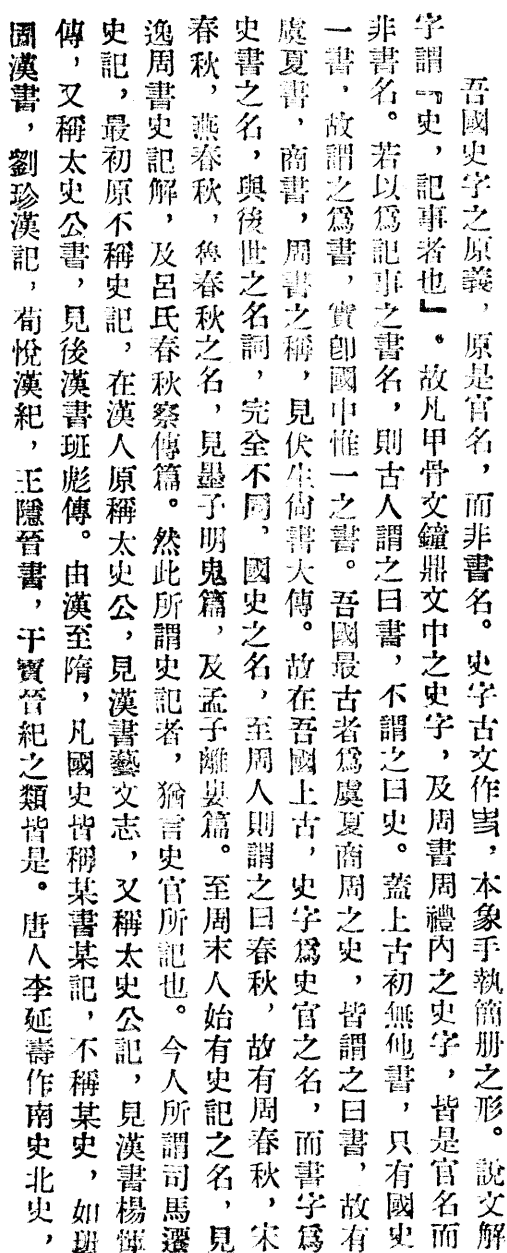 吾國史字之原義，原是官名，而非書名。史字古文作𠭏，本象手執簡册之形。說文解
字謂『史，記事者也』。故凡甲骨文鐘鼎文中之史字，及周書周禮內之史字，皆是官名而
非書名。若以爲記事之書名，則古人謂之曰書，不謂之曰史。蓋上古初無他書，只有國史
一書，故謂之爲書，實卽國中惟一之書。吾國最古者爲虞夏商周之史，皆謂之曰書，故有
虞夏書，商書，周書之稱，見伏生尙書大傳。故在吾國上古，史字爲史官之名，而書字爲
史書之名，與後世之名詞，完全不同，國史之名，至周人則謂之曰春秋，故有周春秋，宋
春秋，燕春秋，魯春秋之名，見墨子明鬼篇，及孟子離婁篇。至周末人始有史記之名，見
逸周書史記解，及呂氏春秋察傳篇。然此所謂史記者，猶言史官所記也。今人所謂司馬遷
史記，最初原不稱史記，在漢人原稱太史公，見漢書藝文志，又稱太史公記，見漢書楊惲
傳，又稱太史公書，見後漢書班彪傳。由漢至隋，凡國史皆稱某書某記，不稱某史，如班
固漢書，劉珍漢記，荀悅漢紀，王隱晉書，干寶晉紀之類皆是。唐人李延壽作南史北史，